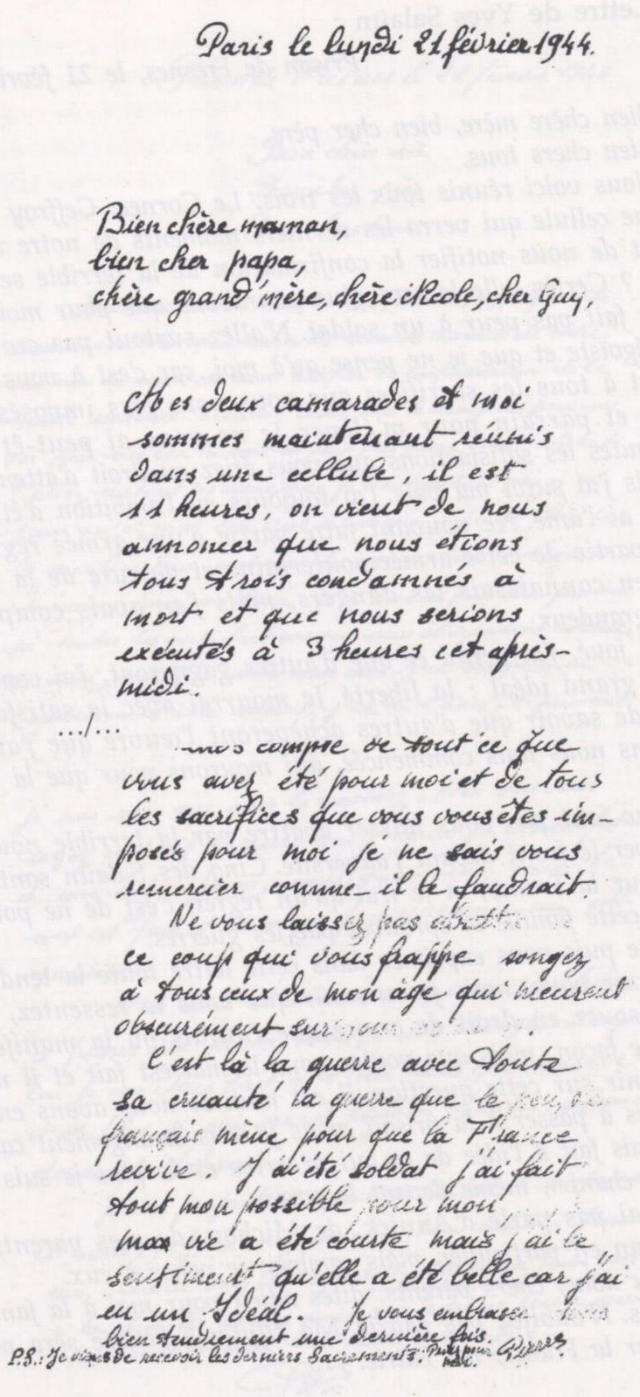 Paris le lundi 21 février 1944.
Bien chère maman,
bien cher papa,
chère grand'mère, chère Nicole, cher Guy,
Mes deux camarades et moi
sommes maintenant réunis
dans une cellule, il est
11 heures, on vient de nous
annoncer que nous étions
tous trois condamnés à
mort et que nous serions
exécutés à 3 heures cet après-
midi.
.../...
compte de tout ce que
vous avez été pour moi et de tous
les sacrifices que vous vous êtes im-
posés pour moi je ne sais vous
remercier comme il le faudrait.
Ne vous laissez pas
ce coup qui vous frappe songez
à tous ceux de mon âge qui meurent
obscurément sur
c'est là la guerre avec toute
sa cruauté la guerre que le
français mène pour que la France
revive. J'ai été soldat j'ai fait
tout mon possible pour mon
ma vie a été courte mais j'ai le
sentiment qu'elle a été belle car j'ai
eu un Idéal. Je vous embrasse tous
bien tendrement une dernière fois.
P.S.: Je viens de recevoir les derniers Sacrements. Priez pour moi. Pierre